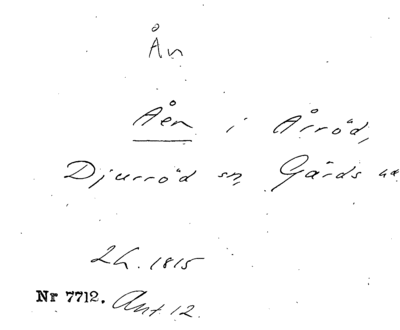 Ån
Åen i Årröd,
Djurröd sn, Gärds
Lh. 1815
Nr 7712. Ant. 12.